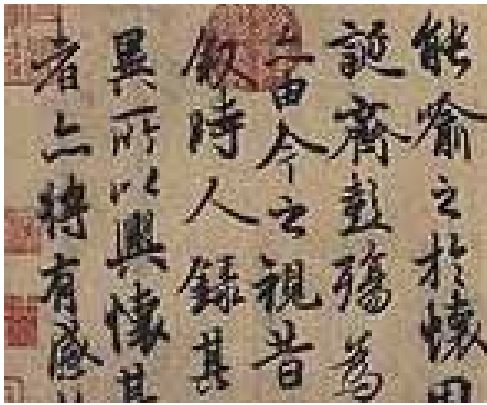 能喻之於懷固
誕齊彭殤為
亦由今之視昔
敘時人錄其
異所以興懷其
者亦將有感